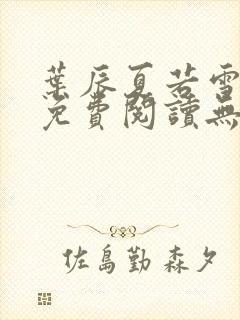 葉辰夏若雪
免費閱讀無
佐島勤 森夕